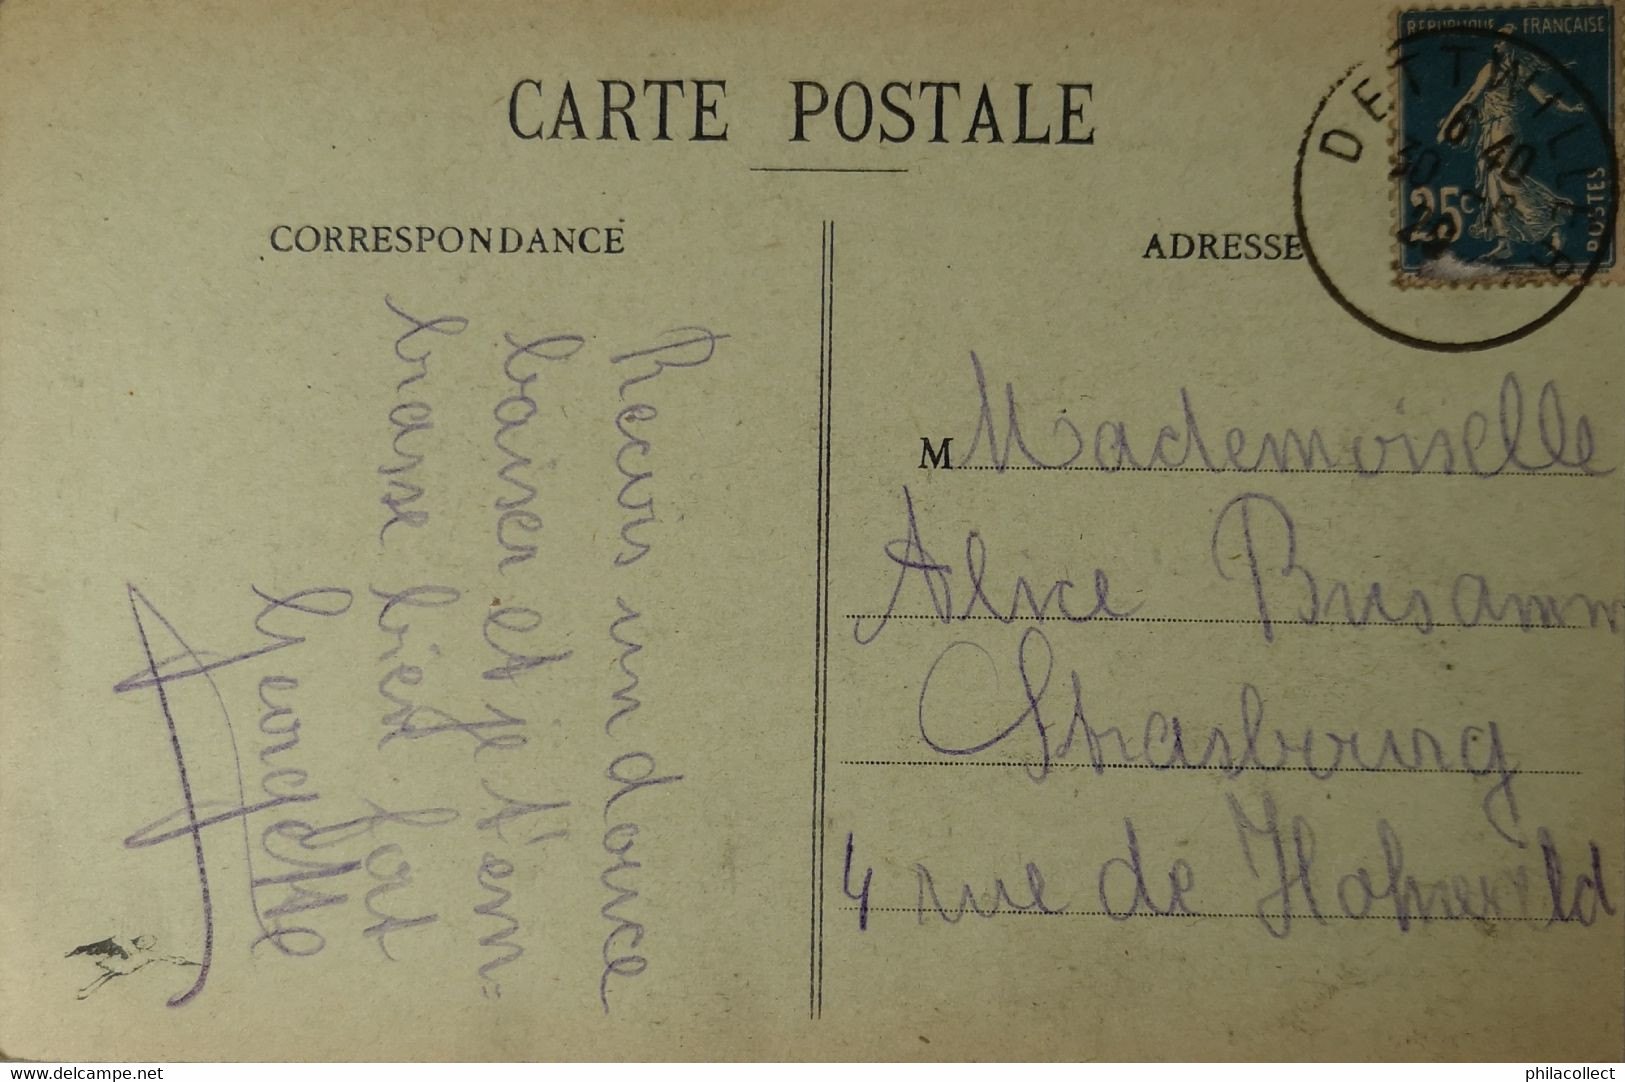 CARTE POSTALE
CORRESPONDANCE
Recois un douce
baiser et je t'em=
brasse bien fort
Georgette
ADRESSE
REPUBLIQUE FRANÇAISE
25c
POSTES
DETTWILLER
6 40
M Mademoiselle
Alice Brisamm
Strasbourg
4 rue de Hohwald
Delcampe.net
philacollect